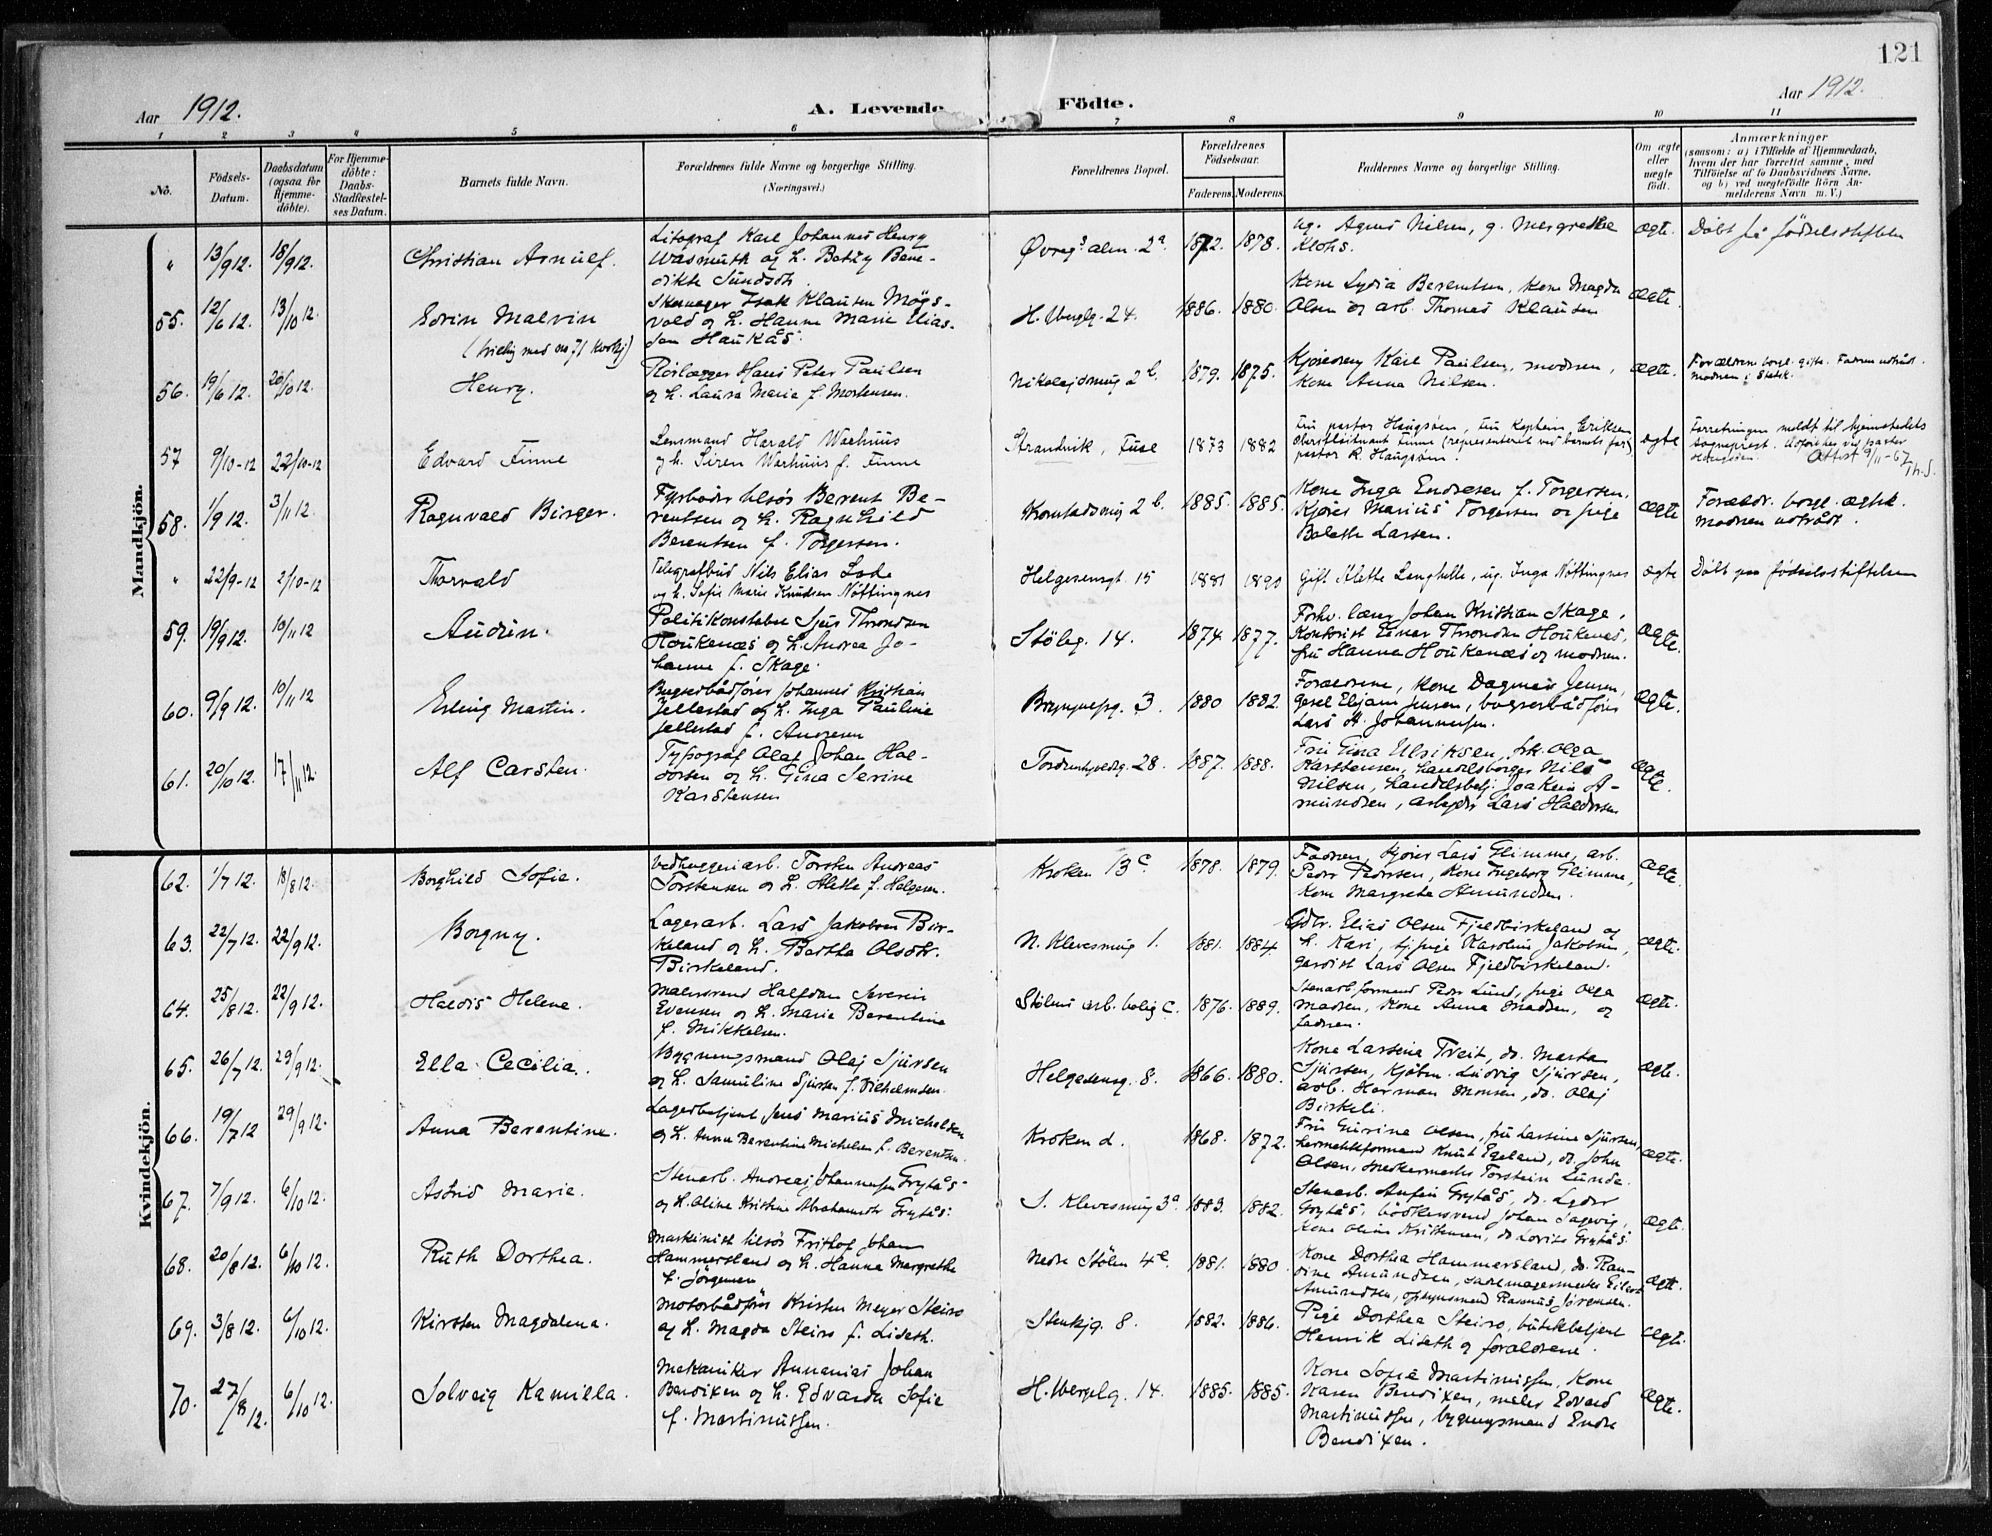 121
Aar 1912.
A. Levende Födte.
Aar 1912.
1 2 3 4 5 6 7 8 9 10 11
No.
Födsels-
Datum.
Daabsdatum
(ogsaa for
Hjemme-
döbte).
For Hjemme-
döbte:
Daabs-
Stadfæstel-
ses Datum.
Barnets fulde Navn.
Forældrenes fulde Navne og borgerlige Stilling.
(Næringsvei.)
Forældrenes Bopæl.
Forældrenes
Födselsaar.
Faderens. Moderens.
Faddernes Navne og borgerlige Stilling.
Om ægte
eller
uægte
födt.
Anmærkninger
(saasom: a) i Tilfælde af Hjemmedaab,
hvem der har forrettet samme, med
Tilföielse af to Daabsvidners Navne,
og b) ved uægtefödte Börn An-
melderens Navn m. V.)
Mandkjön.
" 13/9 12. 18/9 12. Christian Arnulf.
Litograf Karl Johannes Henry
Wasmuth og h. Betzy Bene-
dikte Sundsdt.
Øvreg?s alm. 2a 1872. 1878.
ug. Agnes Nilsen, g. Mergrethe
Klohs.
ægte. Døbt på fødselsstiftelsen
55. 12/6 12. 13/10 12. Edvin Malvin
(tvilling med no 71 kvkj)
Skomager Isak Klausen Møgs-
vold og h. Hanne Marie Elias-
sen Haukås.
H. Wergelg. 24. 1886. 1880.
Kone Lydia Berentsen, kone Magda
Olsen og arb. Thomas Klausen
ægte.
56. 19/6 12. 20/10 12. Henry.
Rørlægger Hans Peter Paulsen
og h. Laura Marie f. Mortensen.
Nikolajsmug 2b. 1879. 1875.
Kjøresvend Karl Paulsen, modren,
kone Anna Nilsen.
ægte.
Forældrene borgl. gifte. Fadren udtrådt.
Modren i Statsk.
57 9/10-12 22/10-12 Edvard Finne
Lensmand Harald Warhuus
og h. Siren Warhuus f. Finne
Strandvik, Fuse 1873 1882
Fru pastor Haugsøen, fru kaptein Eriksen
oberstløitnant Finne (representeret ved barnets far),
pastor K. Haugsøen.
ægte
Forretningen meldt til hjemstedets
sogneprest. Utført ved pastor
Haugsøen. Attest 9/11-67 Th.S.
58. 1/9 12. 3/11 12 Ragnvald Birger.
Fyrbøder tilsjøs Berent Be-
rentsen og h. Ragnhild
Berentsen f. Torgersen.
Kronstadsmug 2b. 1885. 1885.
Kone Inga Endresen f. Torgersen.
Kjører Marius Torgersen og pige
Bolette Larsen.
ægte
Forældr. borgl. ægtev.
Modren udtrådt.
" 22/9-12 2/10-12 Thorvald
Telegrafbud Nils Elias Lode
og h. Sofie Marie Knudsen Nøttingnes
Helgesensgt 15 1881 1890
Gift Alette Langhelle, ug. Inga Nøttingnes
ægte Døbt paa fødselsstiftelsen
59. 19/9 12. 10/11 12 Audun.
Politikonstabel Sjur Thronsen
Houkenæs og h. Andrea Jo-
hanne f. Skage.
Støleg. 14. 1874. 1877.
Forhv. lærer Johan Kristian Skage,
Kontorist Einar Thronsen Houkenæs,
fru Hanna Houkenæs og modren.
ægte.
60. 9/9 12. 10/11 12 Erling Martin.
Bugserbådfører Johannes Kristian
Jellestad og h. Inga Pauline
Jellestad f. Andresen
3. 1880 1882.
Forældrene, kone Dagmar Jensen,
Jensen, bugserbådfører
Lars A. Johannessen.
ægte.
61. 20/10 12. 17/11 12. Alf Carsten.
Typograf Olaf Johan Hal-
dorsen og h. Gina Serine
Karstensen
Tordenskjoldsg. 28. 1887. 1888.
Fru Gina Ulriksen, frk. Olga
Karstensen, handelsborger Nils
Nilsen, handelsbetj. Joakim A-
mundsen, arbejder Lars Haldorsen
ægte.
Kvindekjön.
62. 1/7 12. 18/8 12. Borghild Sofie.
Vedhuggeriarb. Torsten Andreas
Torstensen og h. Alette f. Helgesen.
Kroken 13c 1878. 1879.
Fadren, kjører Lars Glimme, arb.
Peder Pedersen, kone Ingeborg Glimme,
kone Margrete Amundsen.
ægte.
63. 22/7 12. 22/9 12. Borgny.
Lagerarb. Lars Jakobsen Bir-
keland og h. Bertha Olsdtr.
Birkeland.
N. Klevesmug 1. 1881. 1884.
Gdbr. Elias Olsen Fjeldbirkeland og
h. Kari, tj.pige Karoline Jakobsen,
gardist Lars Olsen Fjeldbirkeland.
ægte.
64. 25/8 12. 22/9 12. Haldis Helene.
Malersvend Halfdan Severin
Evensen og h. Marie Berentine
f. Mikkelsen.
Stølens arb. bolig C. 1876. 1889.
Stenarb. formand Peder Lund, pige Olga
Madsen, kone Anna Madsen, og
fadren.
ægte.
65. 26/7 12. 29/9 12. Ella Cecilia.
Bygningsmand Olaj Sjursen
og h. Samuline Sjursen f. Vilhelmsen.
Helgesensg. 8. 1866. 1880.
Kone Larsina Treit, do. Marta
Sjursen, kjøbm. Ludvig Sjursen,
arb. Herman Monsen, do. Olaj
Birkeli.
ægte.
66. 19/7 12 29/9 12. Anna Berentine.
Lagerbetjent Jens Marius Michelsen
og h. Anna Berentine Michelsen f. Berentsen.
Kroken d. 1868. 1872.
Fru Gurina Olsen, fru Larsine Sjursen,
formand Knut Egeland, do. John
Olsen, snekkermester Torstein Lunde.
ægte.
67. 7/9 12. 6/10 12. Astrid Marie.
Stenarb. Andreas Johannessen Grytås
og h. Oline Kristine Abrahamsdtr Grytås.
S. Klevesmug 3a 1883. 1882.
Stenarb. Anfin Grytås, do. Lyder
Grytås, bødkersvend Johan Sagevig,
kone Oline Kristensen, do. Lovise Grytås.
ægte.
68. 20/8 12. 6/10 12. Ruth Dorthea.
Maskinist tilsjøs Fritlof Johan
Hammersland og h. Hanna Margrethe
f. Jørgensen
Nedre Stølen 4e. 1881. 1880.
Kone Dorthea Hammersland, do. Ran-
dine Amundsen, sadelmagermester Eilert
Amundsen, opsynsmand Rasmus Jørgensen.
ægte.
69. 3/8 12. 6/10 12. Kirsten Magdalena.
Motorbådfører Kristen Meyer Steiro
og h. Magda Steiro f. Lideth.
Stenkjg. 8. 1882. 1886.
Pige Dorthea Steiro, butikbetjent
Henrik Lideth og forældrene.
ægte.
70. 27/8 12. 6/10 12. Solveig Kamilla.
Mekaniker Annanias Johan
Bendixen og h. Edvarda Sofie
f. Martinussen.
H. Wergelg. 14. 1885. 1885.
Kone Sofie Martinussen, kone
Karen Bendixen, maler Edvard
Martinussen, bygningsmand Endre
Bendixen.
ægte.